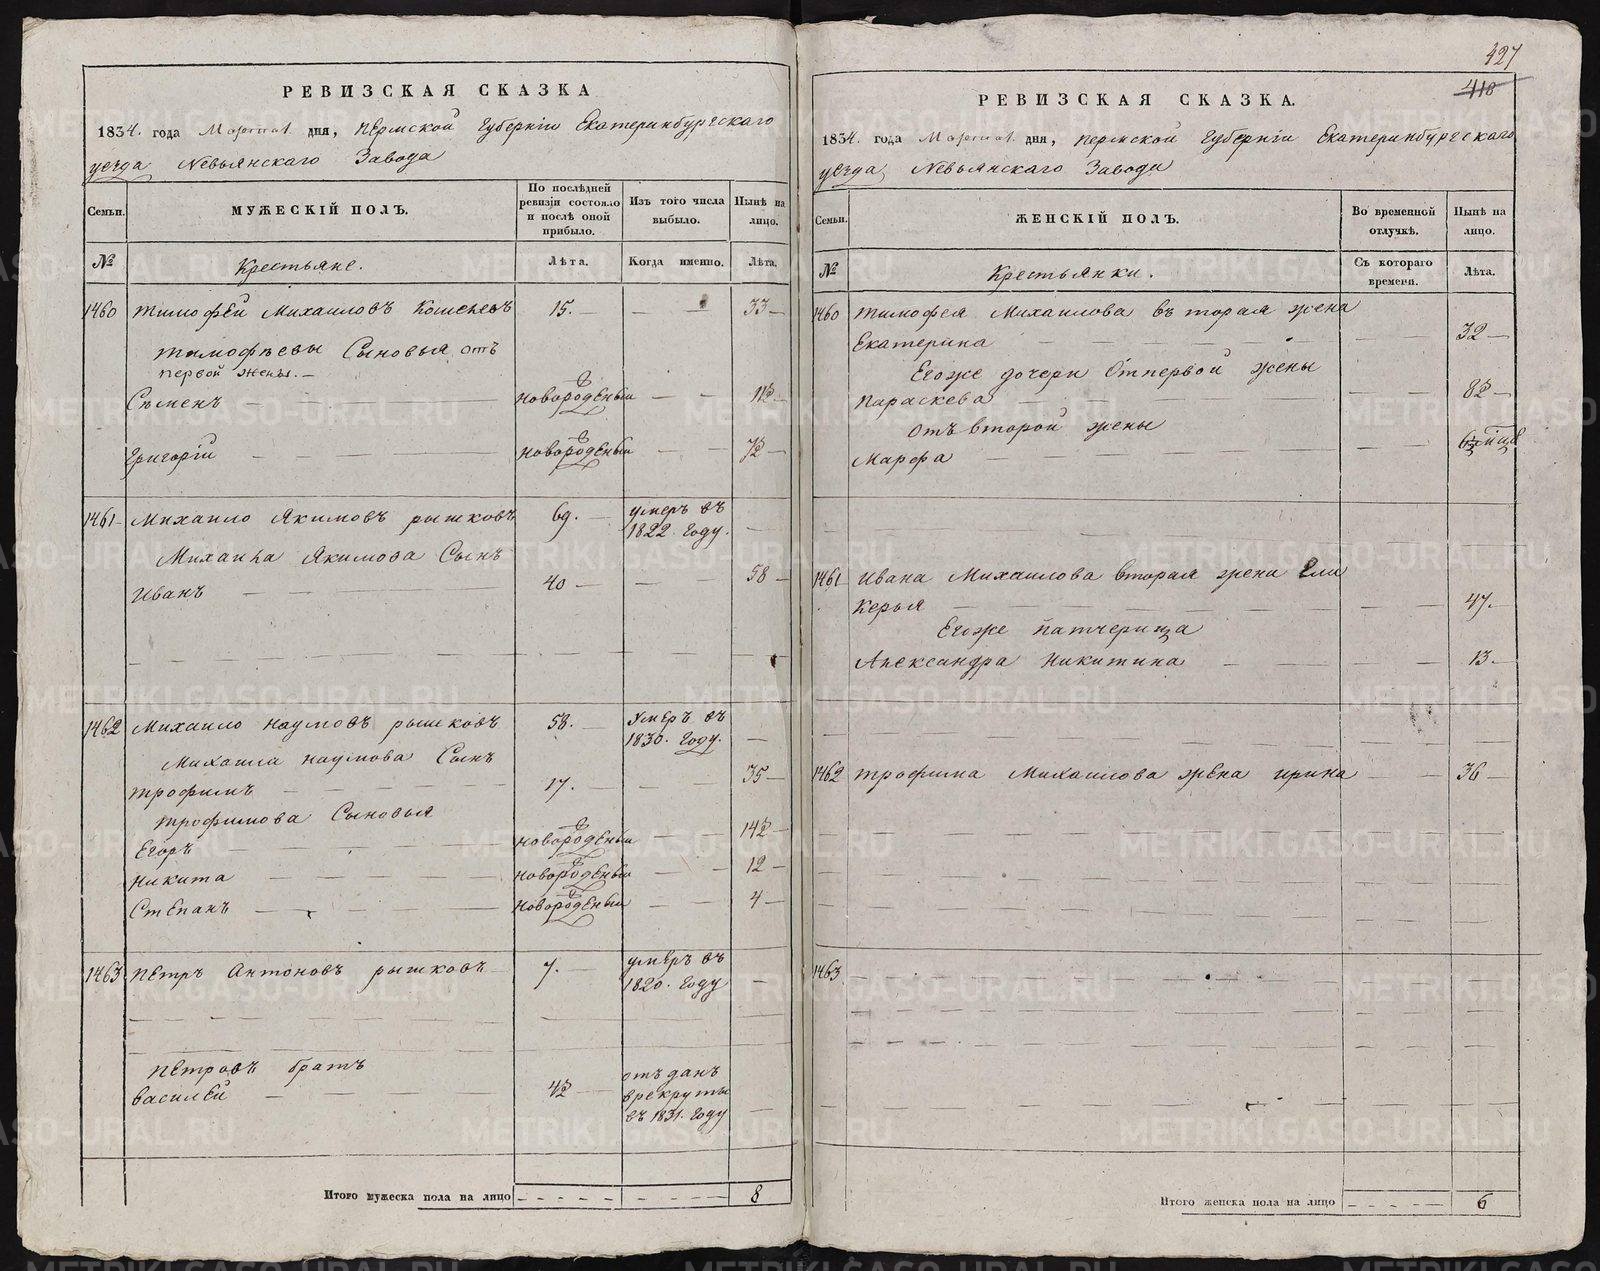 427
418
РЕВИЗСКАЯ СКАЗКА
1834. года Марта 1. дня, Пермской Губерніи Екатеринбургскаго
уезда Невьянскаго Завода
Семьи.
МУЖЕСКІЙ ПОЛЪ.
По послѣдней ревизіи состояло и послѣ оной прибыло.
Изъ того числа выбыло.
Нынѣ на лицо.
№
Крестьяне.
Лѣта.
Когда именно.
Лѣта.
1460 Тимофей Михаиловъ 15. — — — 33 —
Тимофѣевы Сыновья отъ
первой жены. —
Сѣменъ — новорожденый — — 11½ —
Григорій — новорожденый — — 7½ —
1461 Михаило Якимовъ рышковъ 69. — умеръ въ
1822. году. —
Михаила Якимова Сынъ
Иванъ — 40 — — — 58 —
1462 Михаило наумовъ рышковъ 58. — Умеръ въ
1830. Году. —
Михаила наумова Сынъ
трофимъ — 17. — — — 35 —
трофимова Сыновья
Егоръ — новорожденый — — 14½ —
Никита — новорожденый — — 12 —
Степанъ — новорожденый — — 4 —
1463 Петръ Антоновъ рышковъ 7. — умеръ въ
1820. году —
Петровъ братъ
Василей — 4½ — отъданъ
врекруты
въ 1831. году —
Итого мужеска пола на лицо — — — — — 8
РЕВИЗСКАЯ СКАЗКА.
1834. года Марта 1. дня, Пермской Губерніи Екатеринбургскаго
уезда, Невьянскаго Завода
Семьи.
ЖЕНСКІЙ ПОЛЪ.
Во временной отлучкѣ.
Нынѣ на лицо.
№
Крестьянки.
Съ котораго времени.
Лѣта.
1460 Тимофея Михаилова въторая жена
Екатерина — — — 32 —
Егоже дочери Отпервой жены
Параскева — — — 8½ —
отъ второй жены
Марфа — — —
1461 Ивана Михаилова вторая жена Гли
керья — — — 47. —
Егоже патчерица
Александра Никитина — — — 13. —
1462 трофима Михаилова жена ирина — — 36 —
1463
Итого женска пола на лицо — — — — 6
METRIKI.GASO-URAL.RU